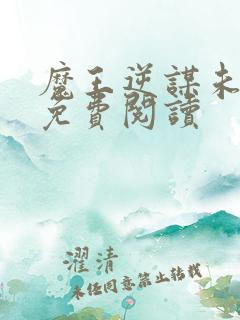 魔王逆謀未
免費閱讀
濯清
未任同意禁止转载